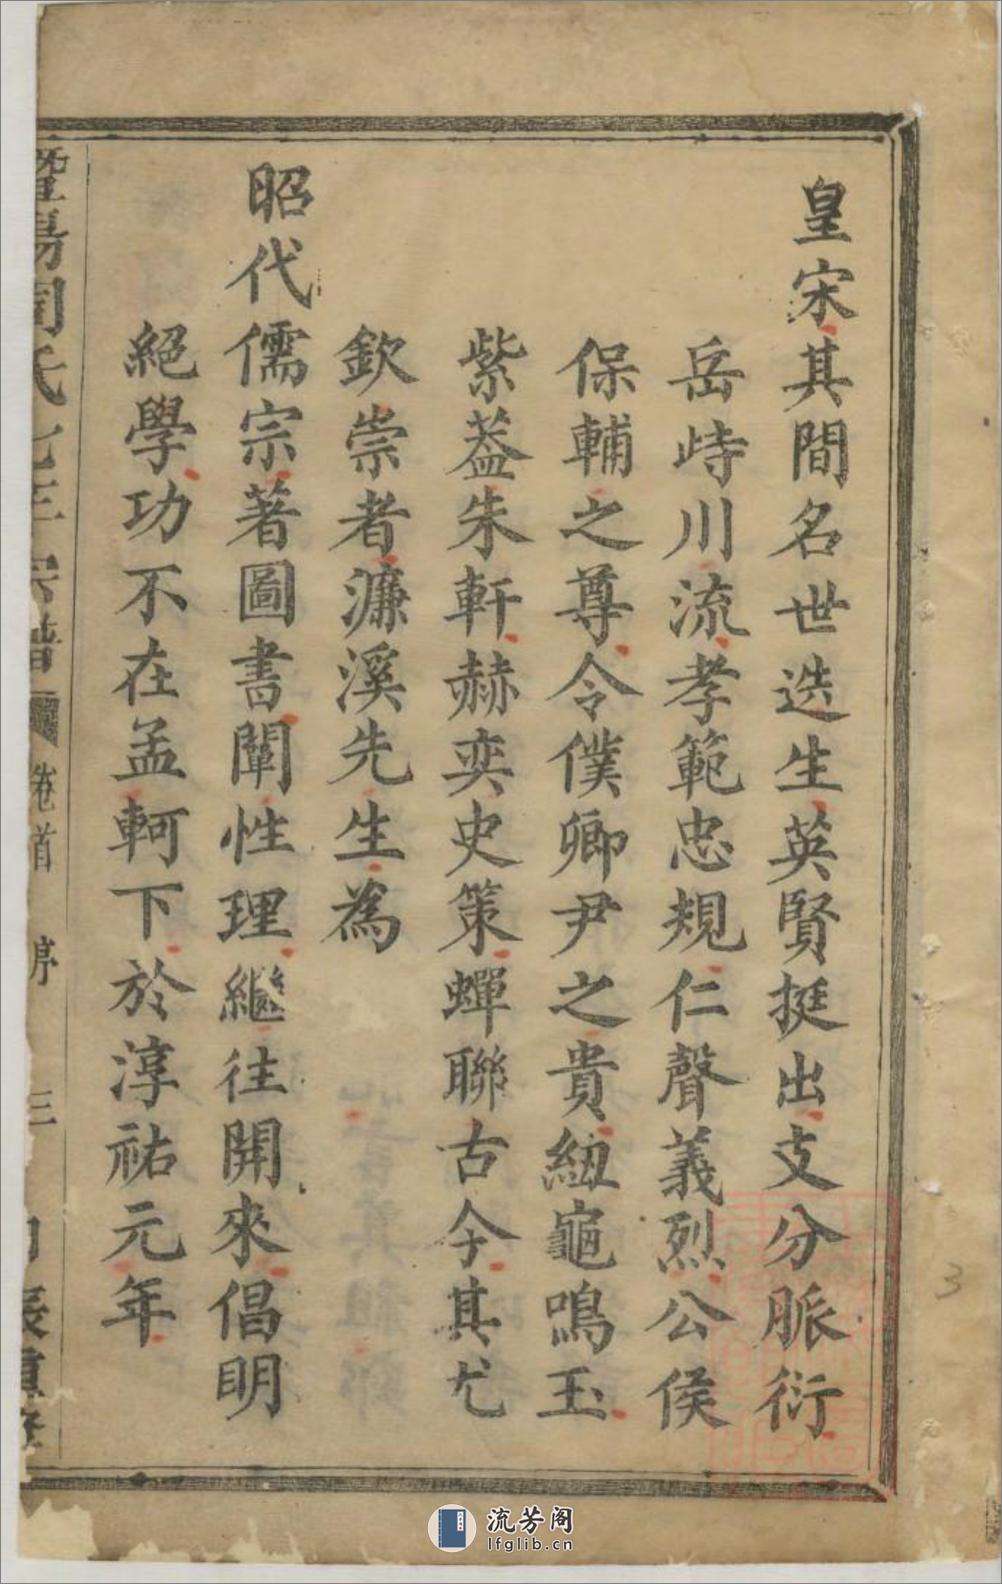 皇宋其間名世迭生英賢挺出支分脈衍
岳峙川流孝範忠規仁聲義烈公侯
保輔之尊令僕卿尹之貴紐龜鳴玉
紫葢朱軒赫奕史策蟬聯古今其尤
欽崇者濂溪先生為
昭代儒宗著圖書闡性理繼往開來倡明
絕學功不在孟軻下於淳祐元年
暨陽周氏 宗譜 卷首 序 三
3
流芳阁
lfglib.cn